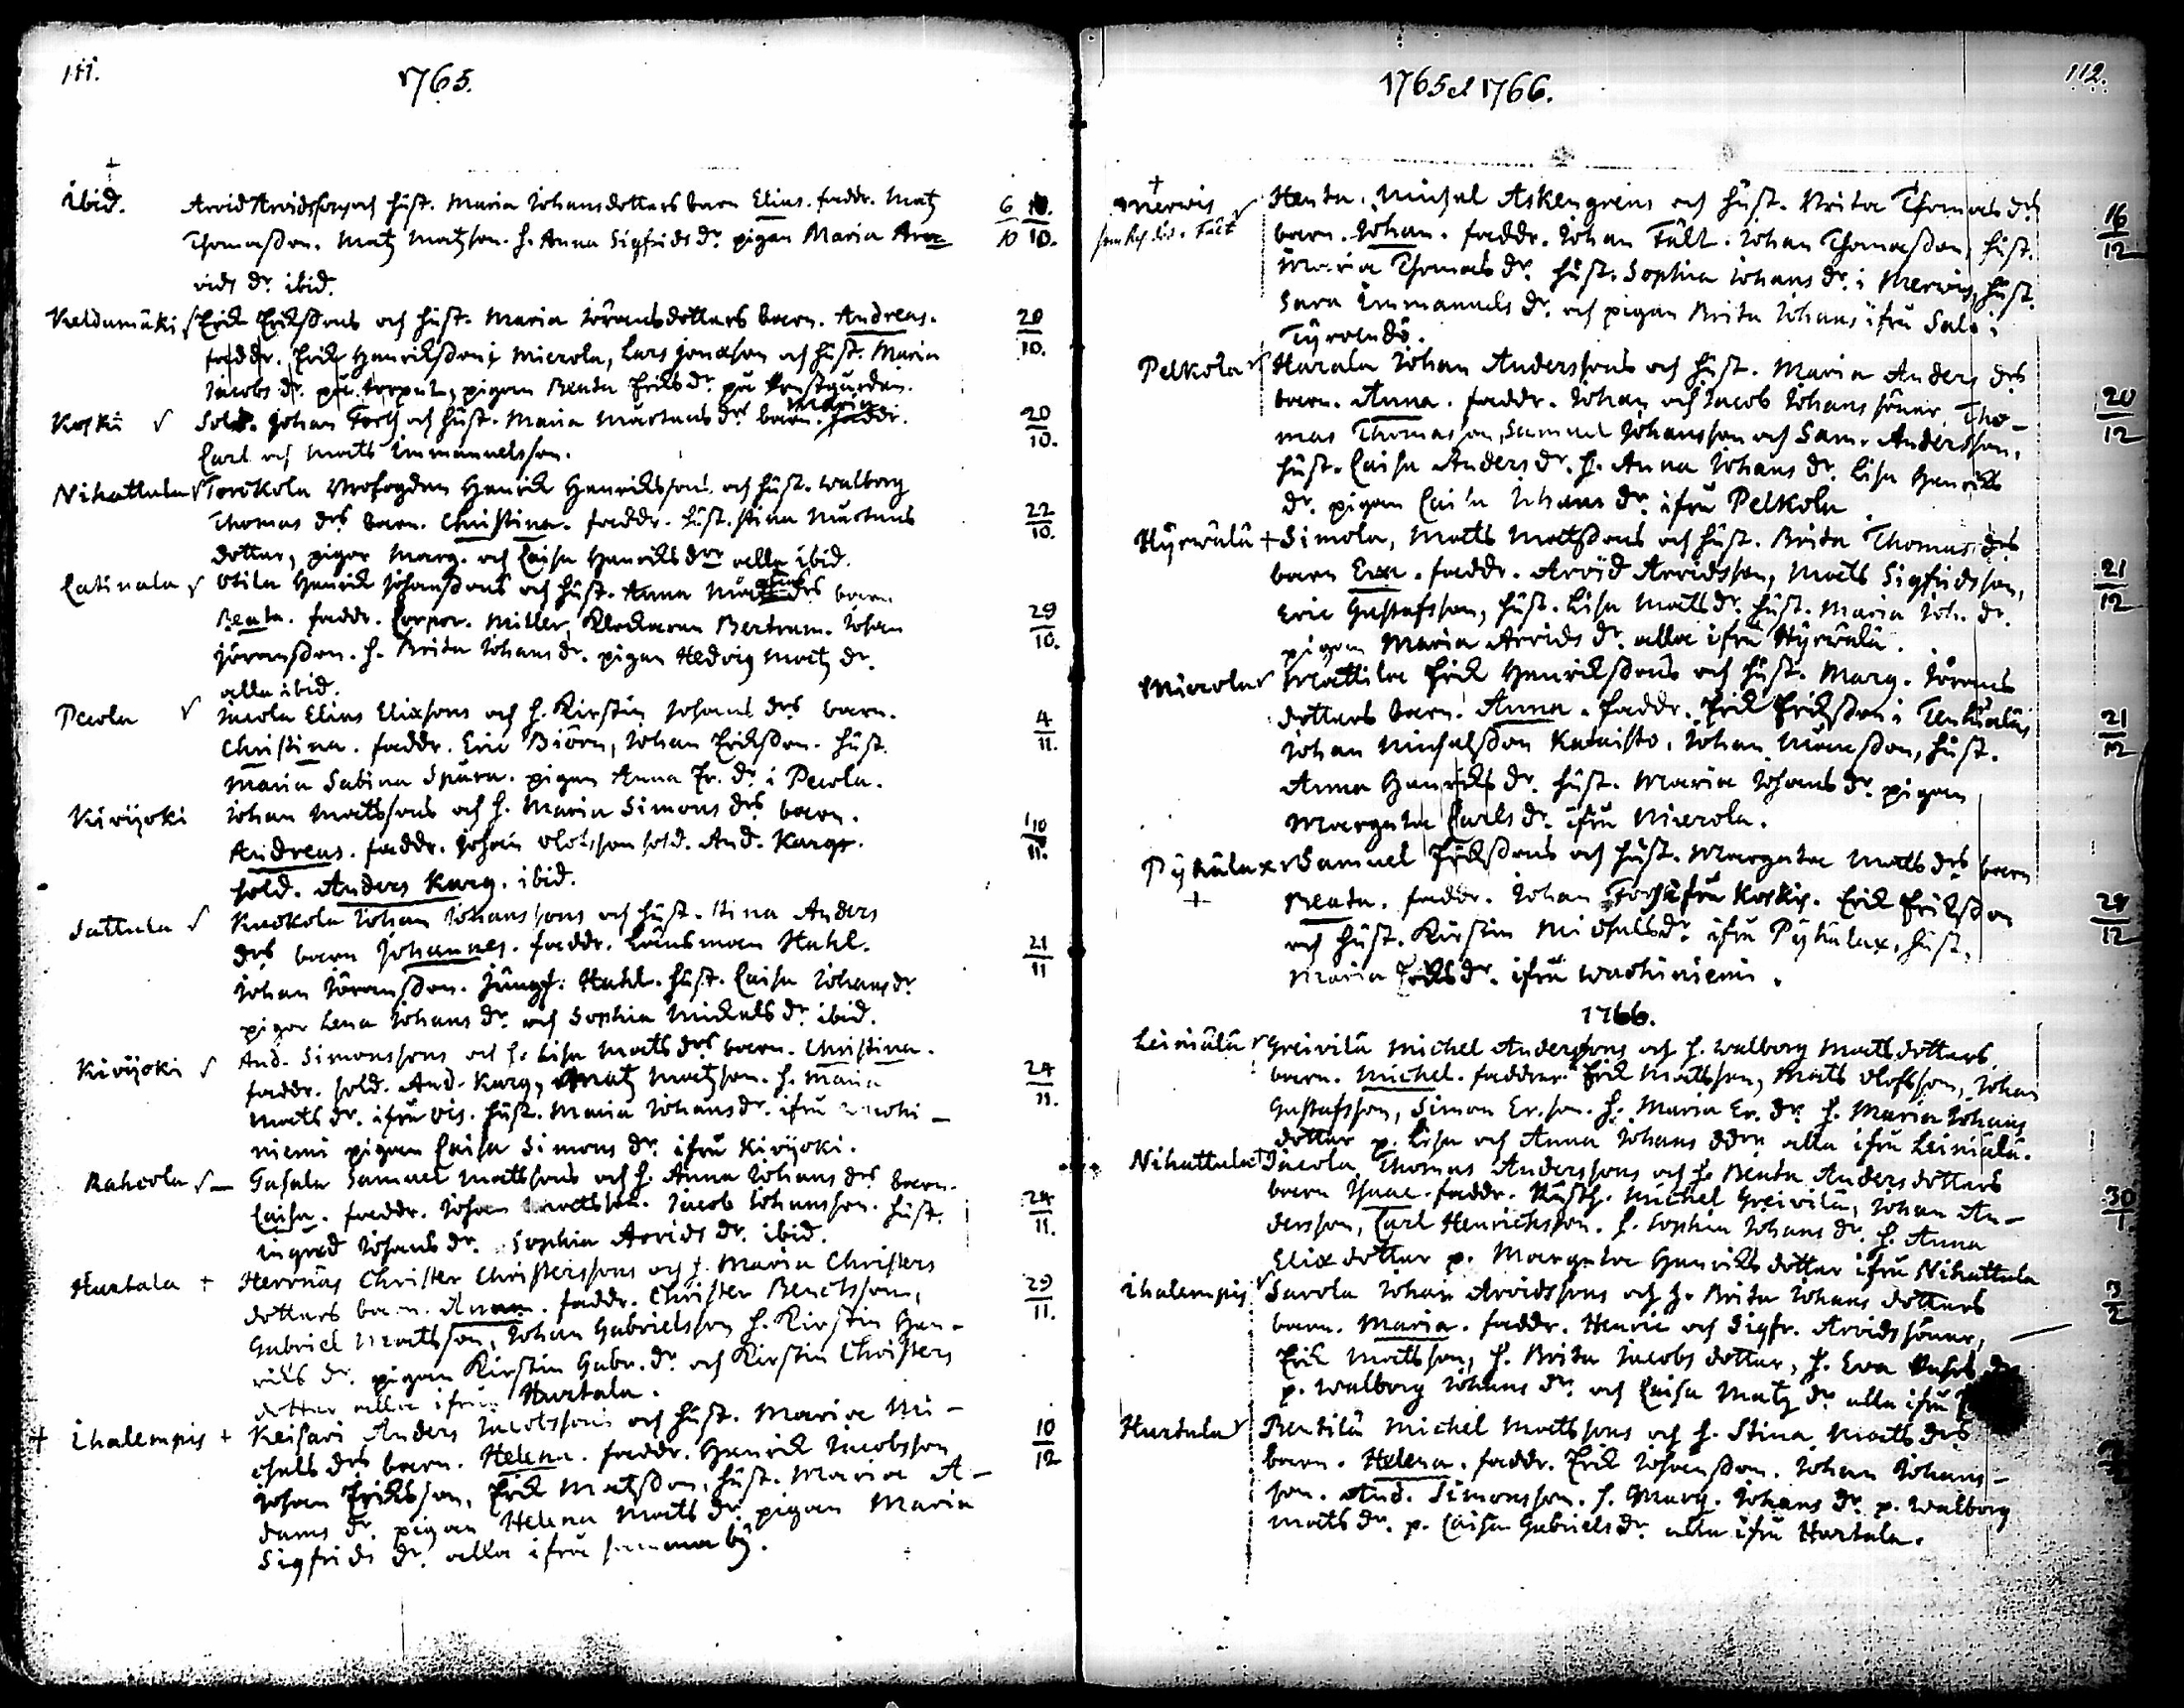 111.
1765.
ibid. Arvid Arvidssons och hust. Maria Johansdotters barn Elias. faddr. Matz 6/10 10/10.
Thomasson. Matz Matzson. h. Anna Sigfrids dr. pigan Maria Ar-
vids dr. ibid.
Keldumäki Erik Erikssons och hust. Maria Jöransdotters barn. Andreas. 20/10.
faddr. Erik Henriksson i Mierola, Lars Jonasson och hust. Maria
Jacobs dr. på torpet, pigan Beata Eriks dr. på Prästgården.
Koski Sold. Johan Forss och hust. Maria Mårtens drs barn. Maria faddr. 20/10.
Carl och Matts Immanuelsson.
Nihattula Torckola Rofogden Henrik Henrikssons och hust. Walborg
Thomas drs barn. Christina. faddr. hust. Stina Mårtens 22/10.
dotter, pigor Marg. och Caisa Henriks drr alla ibid.
Katinala Otila Henrik Johanssons och hust. Anna drs barn
Beata. faddr. Corpor. Miller, Klockaren Bertram. Johan 29/10.
Jöransson. h. Brita Johans dr. pigan Hedvig Matz dr.
alla ibid.
Pecola Jacola Elias Eliæsons och h. Kirstin Johans drs barn. 4/11.
Christina. faddr. Eric Biörn, Johan Eriksson. hust.
Maria Sabina Spåra. pigan Anna Er. dr. i Pecola.
Kirijoki Johan Mattssons och h. Maria Simons drs barn. 10/11.
Andreas. faddr. Johan Olofsson sold. And. Karg.
sold. Anders Karg. ibid.
Sattula Knockola Johan Johanssons och hust. Stina Anders
drs barn Johannes. faddr. Länsman Hahl. 21/11
Johan Jöransson. Jungf. Hahl. hust. Caisa Johans dr.
pigor Lena Johans dr. och Sophia Mickels dr. ibid.
Kirijoki And. Simonssons och h. Lisa Matts drs barn. Christina. 24/11.
faddr. sold. And. Karg, Matz Matzson. h. Maria
Matts dr. ifrån Ois. hust. Maria Johans dr. ifrån Wuohi-
niemi pigan Caisa Simons dr. ifrån Kirijoki.
Rahcola Gasala Samuel Mattssons och h. Anna Johans drs barn. 24/11.
Caisa. faddr. Johan Mattsson. Jacob Johansson. hust.
Ingred Johans dr. Sophia Arvids dr. ibid.
Hurtala + Herrnäs Christer Christerssons och h. Maria Christers 29/11.
dotters barn. Anna. faddr. Christer Benctsson,
Gabriel Mattsson, Johan Gabrielsson h. Kirstin Hen-
riks dr. pigan Kirstin Gabr. dr. och Kirstin Christers
dotter alla ifrån Hurtala.
+ Ihalempis + Keisari Anders Jacobssons och hust. Maria Mi- 10/12
chels drs barn. Helena. faddr. Henrik Jacobsson
Johan Eriksson, Erik Matsson, hust. Maria A-
dams dr. pigan Helena Matts dr. pigan Maria
Sigfrids dr. alla ifrån samma by.
112.
1765 et 1766.
+ Mervis Heuta. Michel Askengrens och hust. Brita Thomas drs 16/12
barn. Johan. faddr. Johan Fält. Johan Thomasson, hust.
Maria Thomas dr. hust. Sophia Johans dr. i Mervis, hust.
Sara Immanuels dr. och pigan Brita Johans ifrån Salo i
Tyrvendö.
Pelkola Harala Johan Anderssons och hust. Maria Anders drs
barn. Anna. faddr. Johan och Jacob Johans söner. Tho- 20/12
mas Thomasson, Samuel Johansson och Sam. Andersson,
hust. Caisa Anders dr. h. Anna Johans dr. Lisa Henriks
dr. pigan Caisa Johans dr. ifrån Pelkola
Hyrvälä + Simola, Matts Mattssons och hust. Brita Thomas drs
barn Eva. faddr. Arvid Arvidsson, Matts Sigfridsson, 21/12
Eric Gustafsson, hust. Lisa Matts dr. hust. Maria Joh. dr.
pigan Maria Arvids dr. alla ifrån Hyrvälä.
Mierola Mattila Erik Henrikssons och hust. Marg. Jörans
dotters barn. Anna. faddr. Erik Eriksson i Tenhiälä, 21/12
Johan Michelsson Kataisto. Johan Månsson, hust.
Anna Henriks dr. hust. Maria Johans dr. pigan
Margeta Carls dr. ifrån Mierola.
Pyhälax Samuel Erikssons och hust. Margeta Matts drs barn
+ Beata. faddr. Johan Forss ifrån Koskis. Erik Eriksson 24/12
och hust. Kirstin Michels dr. ifrån Pyhälax, hust.
Maria Eriks dr. ifrån Wuohiniemi.
1766.
Leiniälä Greivilä Michel Anderssons och h. Walborg Matts dotters
barn. Michel. faddrar. Erik Mattsson, Mats Olofsson, Johan
Gustafsson, Simon Er.son. h. Maria Er. dr. h. Maria Johans
dotter p. Lisa och Anna Johans ddrr alla ifrån Leiniälä.
Nihattula Jacola Thomas Anderssons och h. Beata Anders dotters
barn Isaac. faddr. Rusth. Michel Greivilä, Johan An- 30/1
dersson, Carl Henricksson. h. Sophia Johans dr. h. Anna
Eliæ dotter p. Margeta Henriks dotter ifrån Nihattula
Ihalempis Savola Johan Arvidssons och h. Brita Johans dotters 3/2
barn. Maria. faddr. Henric och Sigfr. Arvids söner,
Erik Mattsson, h. Brita Jacobs dotter, h. Eva
p. Walborg Johans dr. och Caisa Matz dr. alla ifrån
Hurtala Bentilä Michel Mattssons och h. Stina Matts drs
barn. Helena. faddr. Erik Johansson. Johan Johans-
son. And. Simonsson. h. Marg. Johans dr. p. Walborg
Matts dr. p. Caisa Gabriels dr. alla ifrån Hurtala.